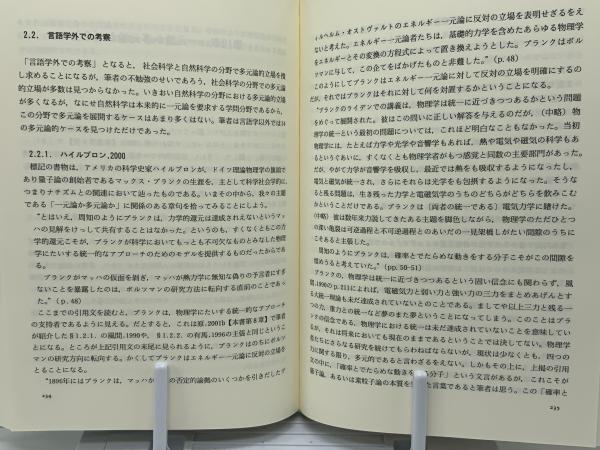 2.2. 言語学外での考察
「言語学外での考察」となると，社会科学と自然科学の分野で多元論的立場を捜
し求めることになるが，筆者の不勉強のせいであろう，社会科学の分野での多元論
的立場が多数は見つからなかった。いきおい自然科学の分野における多元論的立場
が多くなるが，なにせ自然科学は本来的に一元論を要求する学問分野であるから，
この分野で多元論を展開するケースはあまり多くはない。筆者は言語学以外では14
の多元論的ケースを見つけただけであった。
2.2.1. ハイルブロン,2000
標記の書物は，アメリカの科学史家ハイルブロンが，ドイツ理論物理学の重鎮で
あり量子論の創始者であるマックス・プランクの生涯を，主として科学社会学的に，
つまりナチズムとの関連において辿ったものである。いまその中から，我々の主題
である「一元論か多元論か」に関係のある章句を拾ってみることにしよう。
“とはいえ，周知のようにプランクは，力学的還元は達成されえないというマッ
ハの見解をけっして共有することはなかった。というのも，すくなくともこの力
学的還元こそが，プランクが科学においてもっとも不可欠なものとみなした物理
学にたいする統一的なアプローチのためのモデルを提供するものだったからであ
る。
プランクがマッハの仮面を剥ぎ，マッハが熱力学に無知な偽りの予言者にすぎ
ないことを暴露したのは，ボルツマンの研究方法に転向する直前のことであっ
た。” (p. 48)
ここまでの引用文を読むと，プランクは，物理学にたいする統一的なアプローチ
の支持者であるように見える。だとすると，これは原,2001b【本書第8章】で筆者
が紹介した§1.2.1. の風間,1990や，§2.2.2. の有馬,1996の主張と同じというこ
とになる。ところが上記引用文の末尾に見られるように，プランクはのちにボルツ
マンの研究方向に転向する。かくしてプランクはエネルギー一元論に反対の立場を
とることになる。
“1896年にはプランクは，マッハの否定的論拠のいくつかを引きだしたヴ
234
ィルヘルム・オストヴァルトのエネルギー一元論に反対の立場を表明せざるをえ
ないと考えた。エネルギー一元論者たちは，基礎的力学を含めたあらゆる物理学
をエネルギーとその変換の方程式によって置き換えようとした。プランクはボル
ツマンに与して，この企てをばかげたものと非難した。” (p. 48)
このようにしてプランクはエネルギー一元論に対して反対の立場を明確にするの
だが，それではプランクはそれに対して何を対置するかということになる。
“プランクのライデンでの講義は，物理学は統一に近づきつつあるかという問題
をめぐって展開された。彼はこの問いに正しい解答を与えるのだが，（中略） 物
理学の統一という最初の問題については，これほど明白なこともなかった。当初
物理学には，たとえば力学や光学や音響学もあれば，熱や電気や磁気の科学もあ
るというぐあいに，すくなくとも物理学者がもつ感覚と同数の主要部門があった。
だが，やがて力学が音響学を吸収し，最近では熱をも吸収するようになったし，
電気と磁気が統一され，さらにそれらは光学をも包摂するようになった。そうな
ると残る問題は，生き残った力学と電磁気学のうちのどちらがどちらを飲みこむ
かということだけである。プランクは〔両者の統一である〕電気力学に賭けた。
（中略） 彼は数年来力説してきたある主題を脚色しながら，物理学のただひとつ
の深い亀裂は可逆過程と不可逆過程とのあいだの一見架橋しがたい間隙のうちに
こそあると主張した。
周知のようにプランクは，確率とでたらめな動きをする分子こそがこの間隙を
埋めうると考えていた。” (pp. 50-51)
プランクの，物理学は統一に近づきつつあるという固い信念にも関わらず，風
間,1990のp.211によれば，電磁気力と弱い力と強い力の三力をまとめあげんとす
る大統一理論も未だ達成されていないとのことである。ましてや以上三力と残る一
つの力，重力との統一など夢のまた夢ということになってしまう。このことはプラ
ンクの信念である，物理学における統一は未だ達成されていないことを意味してい
るが，それは将来においても現在のままであるということでは決してない。物理学
者たちにさらなる研究を続けてもらわねばならないが，現状は少なくとも，四つの
力に関する限り，多元的であると言わざるをえない。しかもその上に，上掲の引用
文の中に，「確率とでたらめな動きをする分子」という文言があるが，これこそが
量子論，あるいは素粒子論の本質をついた言葉であると筆者は思う。この「確率と
235